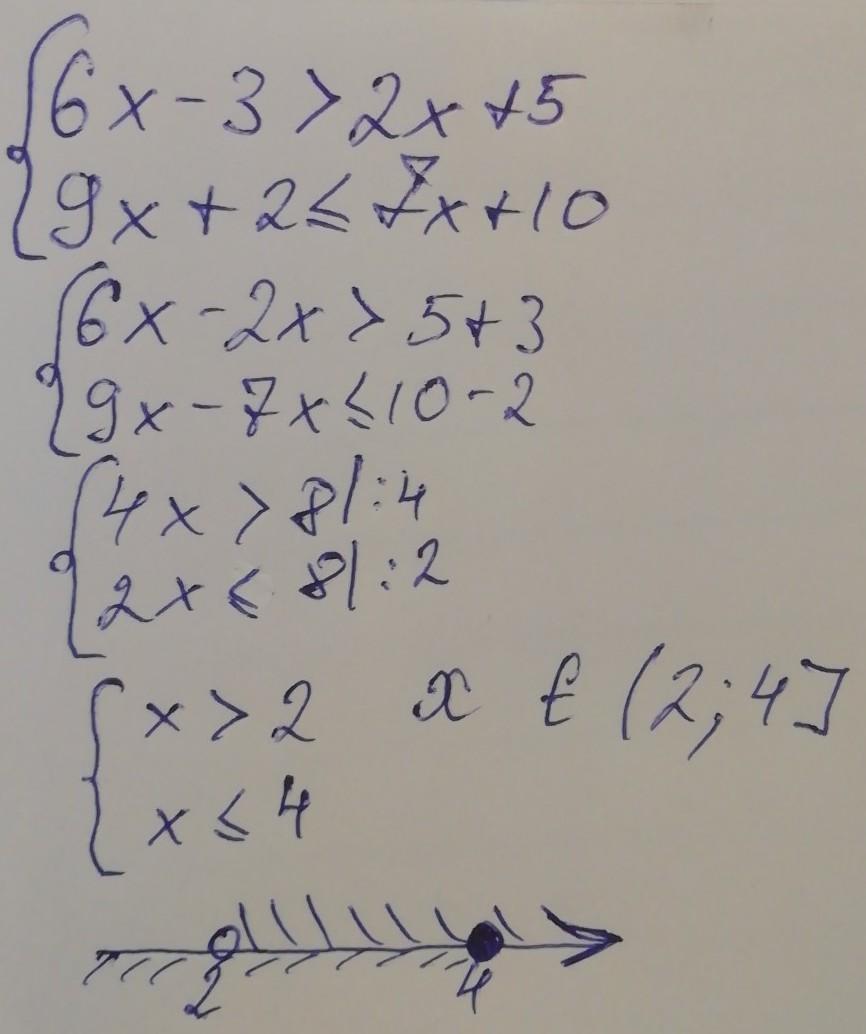 6x - 3 > 2x + 5
9x + 2 ≤ 7x + 10
6x - 2x > 5 + 3
9x - 7x ≤ 10 - 2
4x > 8 | : 4
2x ≤ 8 | : 2
x > 2 x ∈ (2; 4]
x ≤ 4
2 4